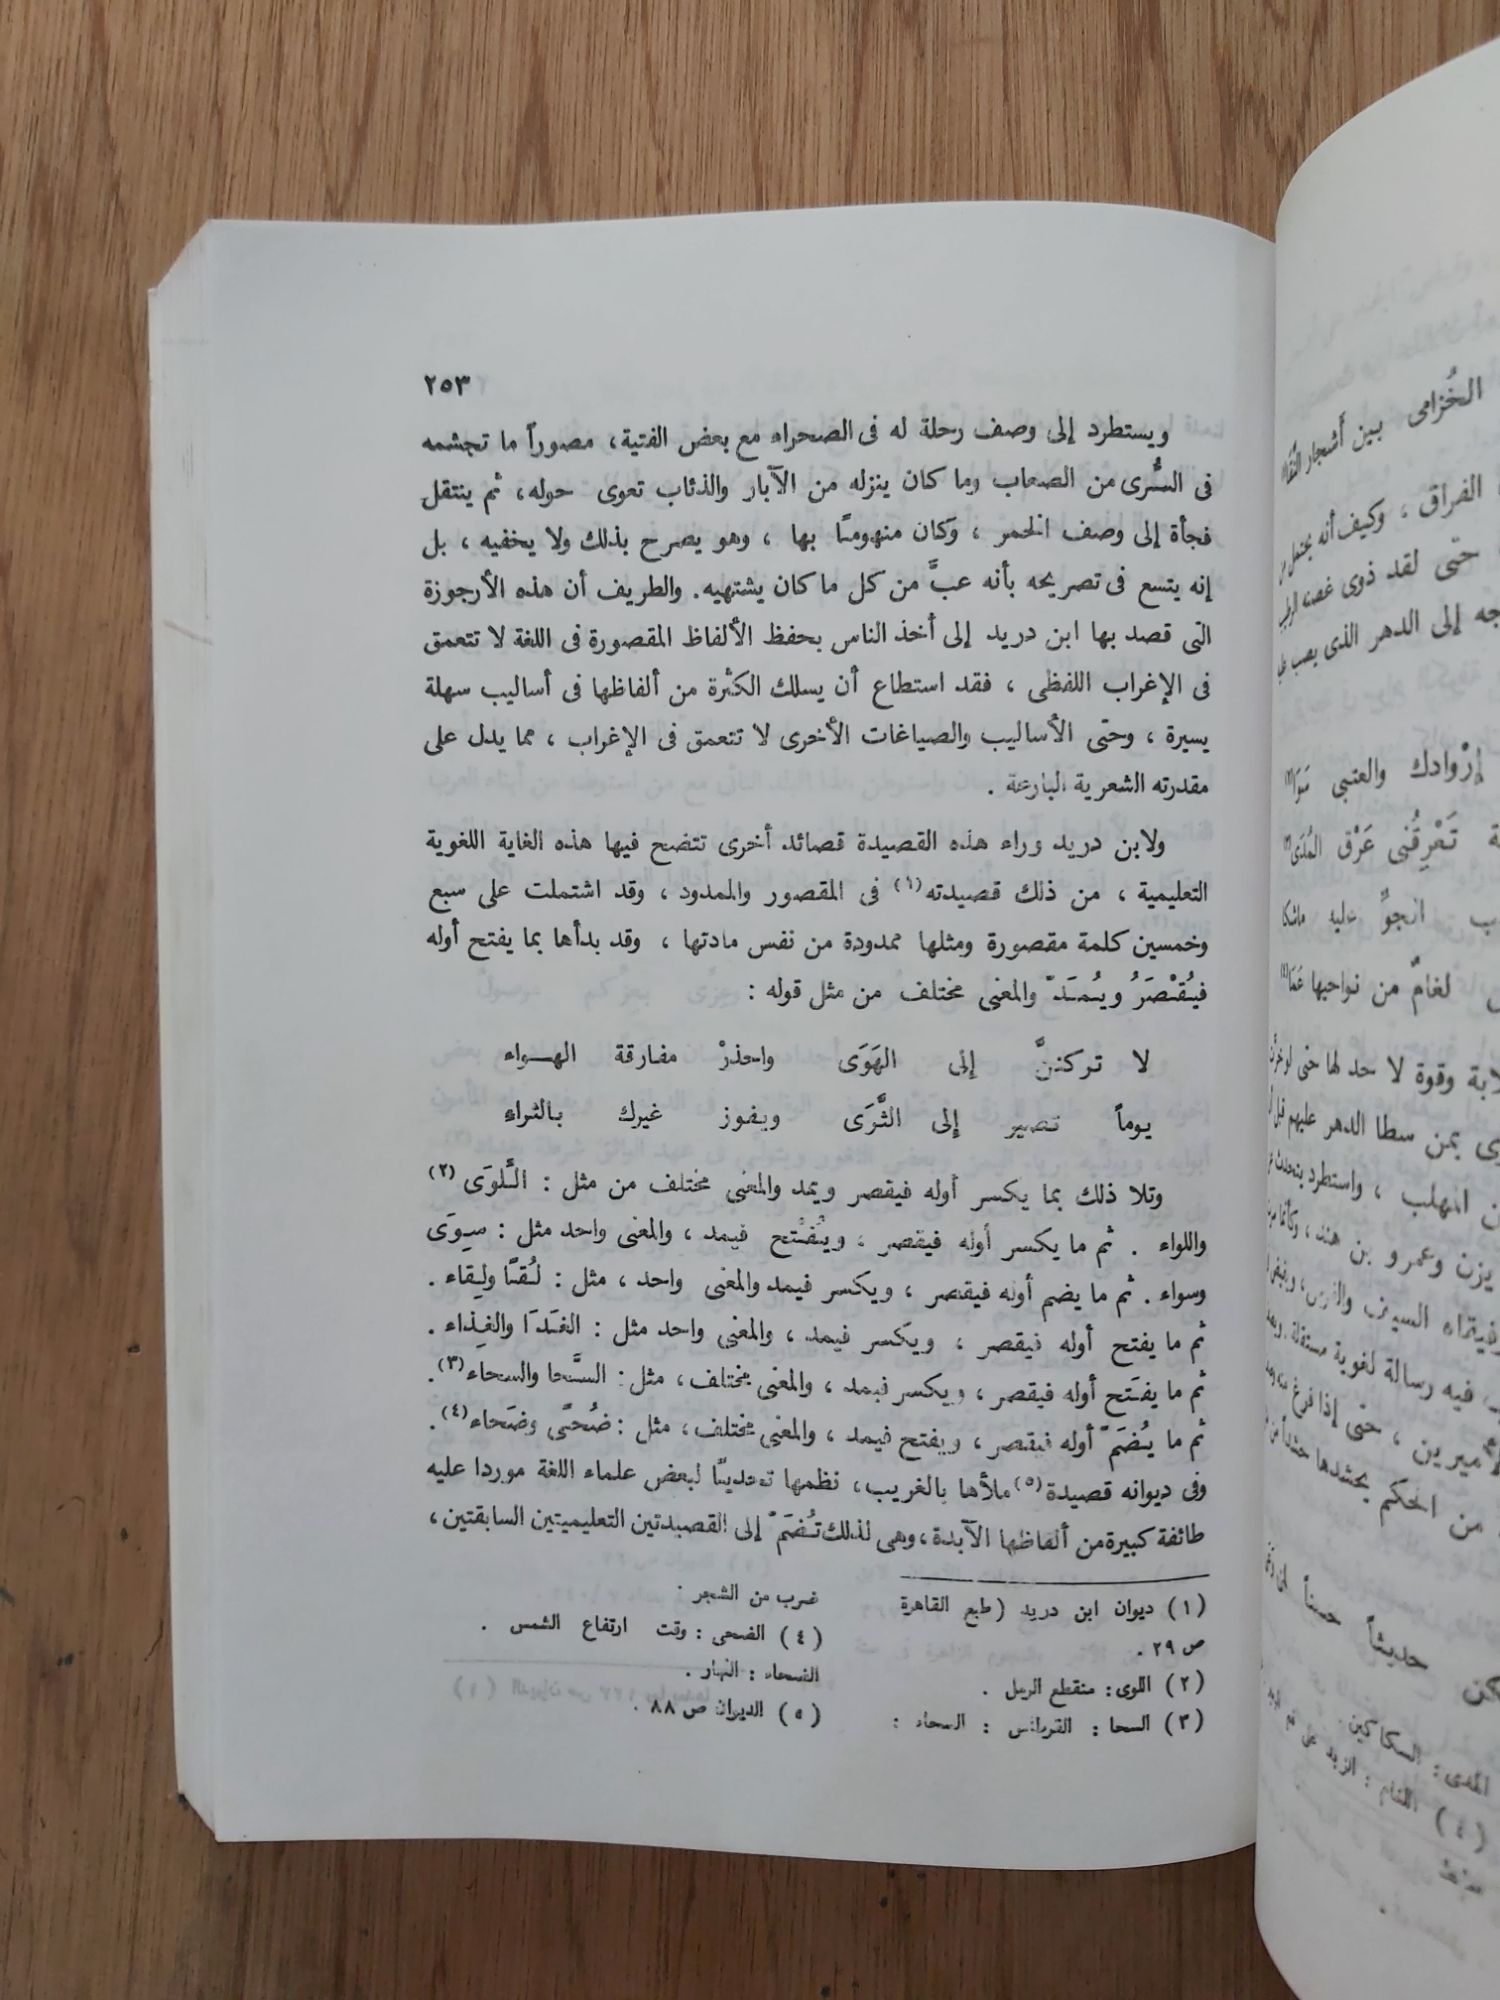 ٢٥٣
ويستطرد إلى وصف رحلة له فى الصحراء مع بعض الفتية، مصوراً ما تجشمه
فى السُّرى من الصعاب وما كان ينزله من الآبار والذئاب تعوى حوله، ثم ينتقل
فجأة إلى وصف الخمر ، وكان منهومًا بها ، وهو يصرح بذلك ولا يخفيه ، بل
إنه يتسع فى تصريحه بأنه عبَّ من كل ما كان يشتهيه. والطريف أن هذه الأرجوزة
التى قصد بها ابن دريد إلى أخذ الناس بحفظ الألفاظ المقصورة فى اللغة لا تتعمق
فى الإغراب اللفظى ، فقد استطاع أن يسلك الكثرة من ألفاظها فى أساليب سهلة
يسيرة ، وحتى الأساليب والصياغات الأخرى لا تتعمق فى الإغراب ، مما يدل على
مقدرته الشعرية البارعة .
ولابن دريد وراء هذه القصيدة قصائد أخرى تتضح فيها هذه الغاية اللغوية
التعليمية ، من ذلك قصيدته(١) فى المقصور والممدود ، وقد اشتملت على سبع
وخمسين كلمة مقصورة ومثلها ممدودة من نفس مادتها ، وقد بدأها بما يفتح أوله
فيُقْصَرُ ويُمَدّ والمعنى مختلف من مثل قوله :
لا تركننَّ إلى الهَوَى واحذرْ مفارقة الهواء
يوماً تصير إلى الثَّرَى ويفوز غيرك بالثراء
وتلا ذلك بما يكسر أوله فيقصر ويمد والمعنى مختلف من مثل : اللِّوَى (٢)
واللواء . ثم ما يكسر أوله فيقصر ، ويُفْتح فيمد ، والمعنى واحد مثل : سِوَى
وسواء . ثم ما يضم أوله فيقصر ، ويكسر فيمد والمعنى واحد ، مثل : لُقًا ولِقاء .
ثم ما يفتح أوله فيقصر ، ويكسر فيمد ، والمعنى واحد مثل : الغَذَا والغِذاء .
ثم ما يفتح أوله فيقصر ، ويكسر فيمد ، والمعنى مختلف ، مثل : السَّحا والسحاء(٣).
ثم ما يُضَمّ أوله فيقصر ، ويفتح فيمد ، والمعنى مختلف ، مثل : ضُحًى وضَحاء(٤).
وفى ديوانه قصيدة(٥) ملأها بالغريب، نظمها تحديًا لبعض علماء اللغة موردا عليه
طائفة كبيرة من ألفاظها الآبدة ، وهى لذلك تُضَمّ إلى القصيدتين التعليميتين السابقتين ،
(١) ديوان ابن دريد (طبع القاهرة
ص ٢٩ .
(٢) اللوى : منقطع الرمل .
(٣) السحا : القرطاس : السحاء :
ضرب من الشجر :
(٤) الضحى : وقت ارتفاع الشمس .
الضحاء : النهار .
(٥) الديوان ص ٨٨ .
الخُزامى بين أشجار النَّقَا
الفراق ، وكيف أنه يحتمل من
حتى لقد ذوى غصنه
إلى الدهر الذى يصب
إرْوادك والعتبى سَوَا(٢)
تَعْرِقُنى عَرْق المُدَى(٣)
لغامٌ من نواحيها عَمَا(٤)
وقوة لا حد لها حتى لو
بمن سطا الدهر عليهم
المهلب ، واستطرد يتحدث
يزن وعمرو بن هند ، وكأنما
فيه رسالة لغوية مستقلة .
حتى إذا فرغ
من الحكم يحشدها حشداً
حديثاً حسناً
المدى : السكاكين .
(٤) اللغام : الزبد